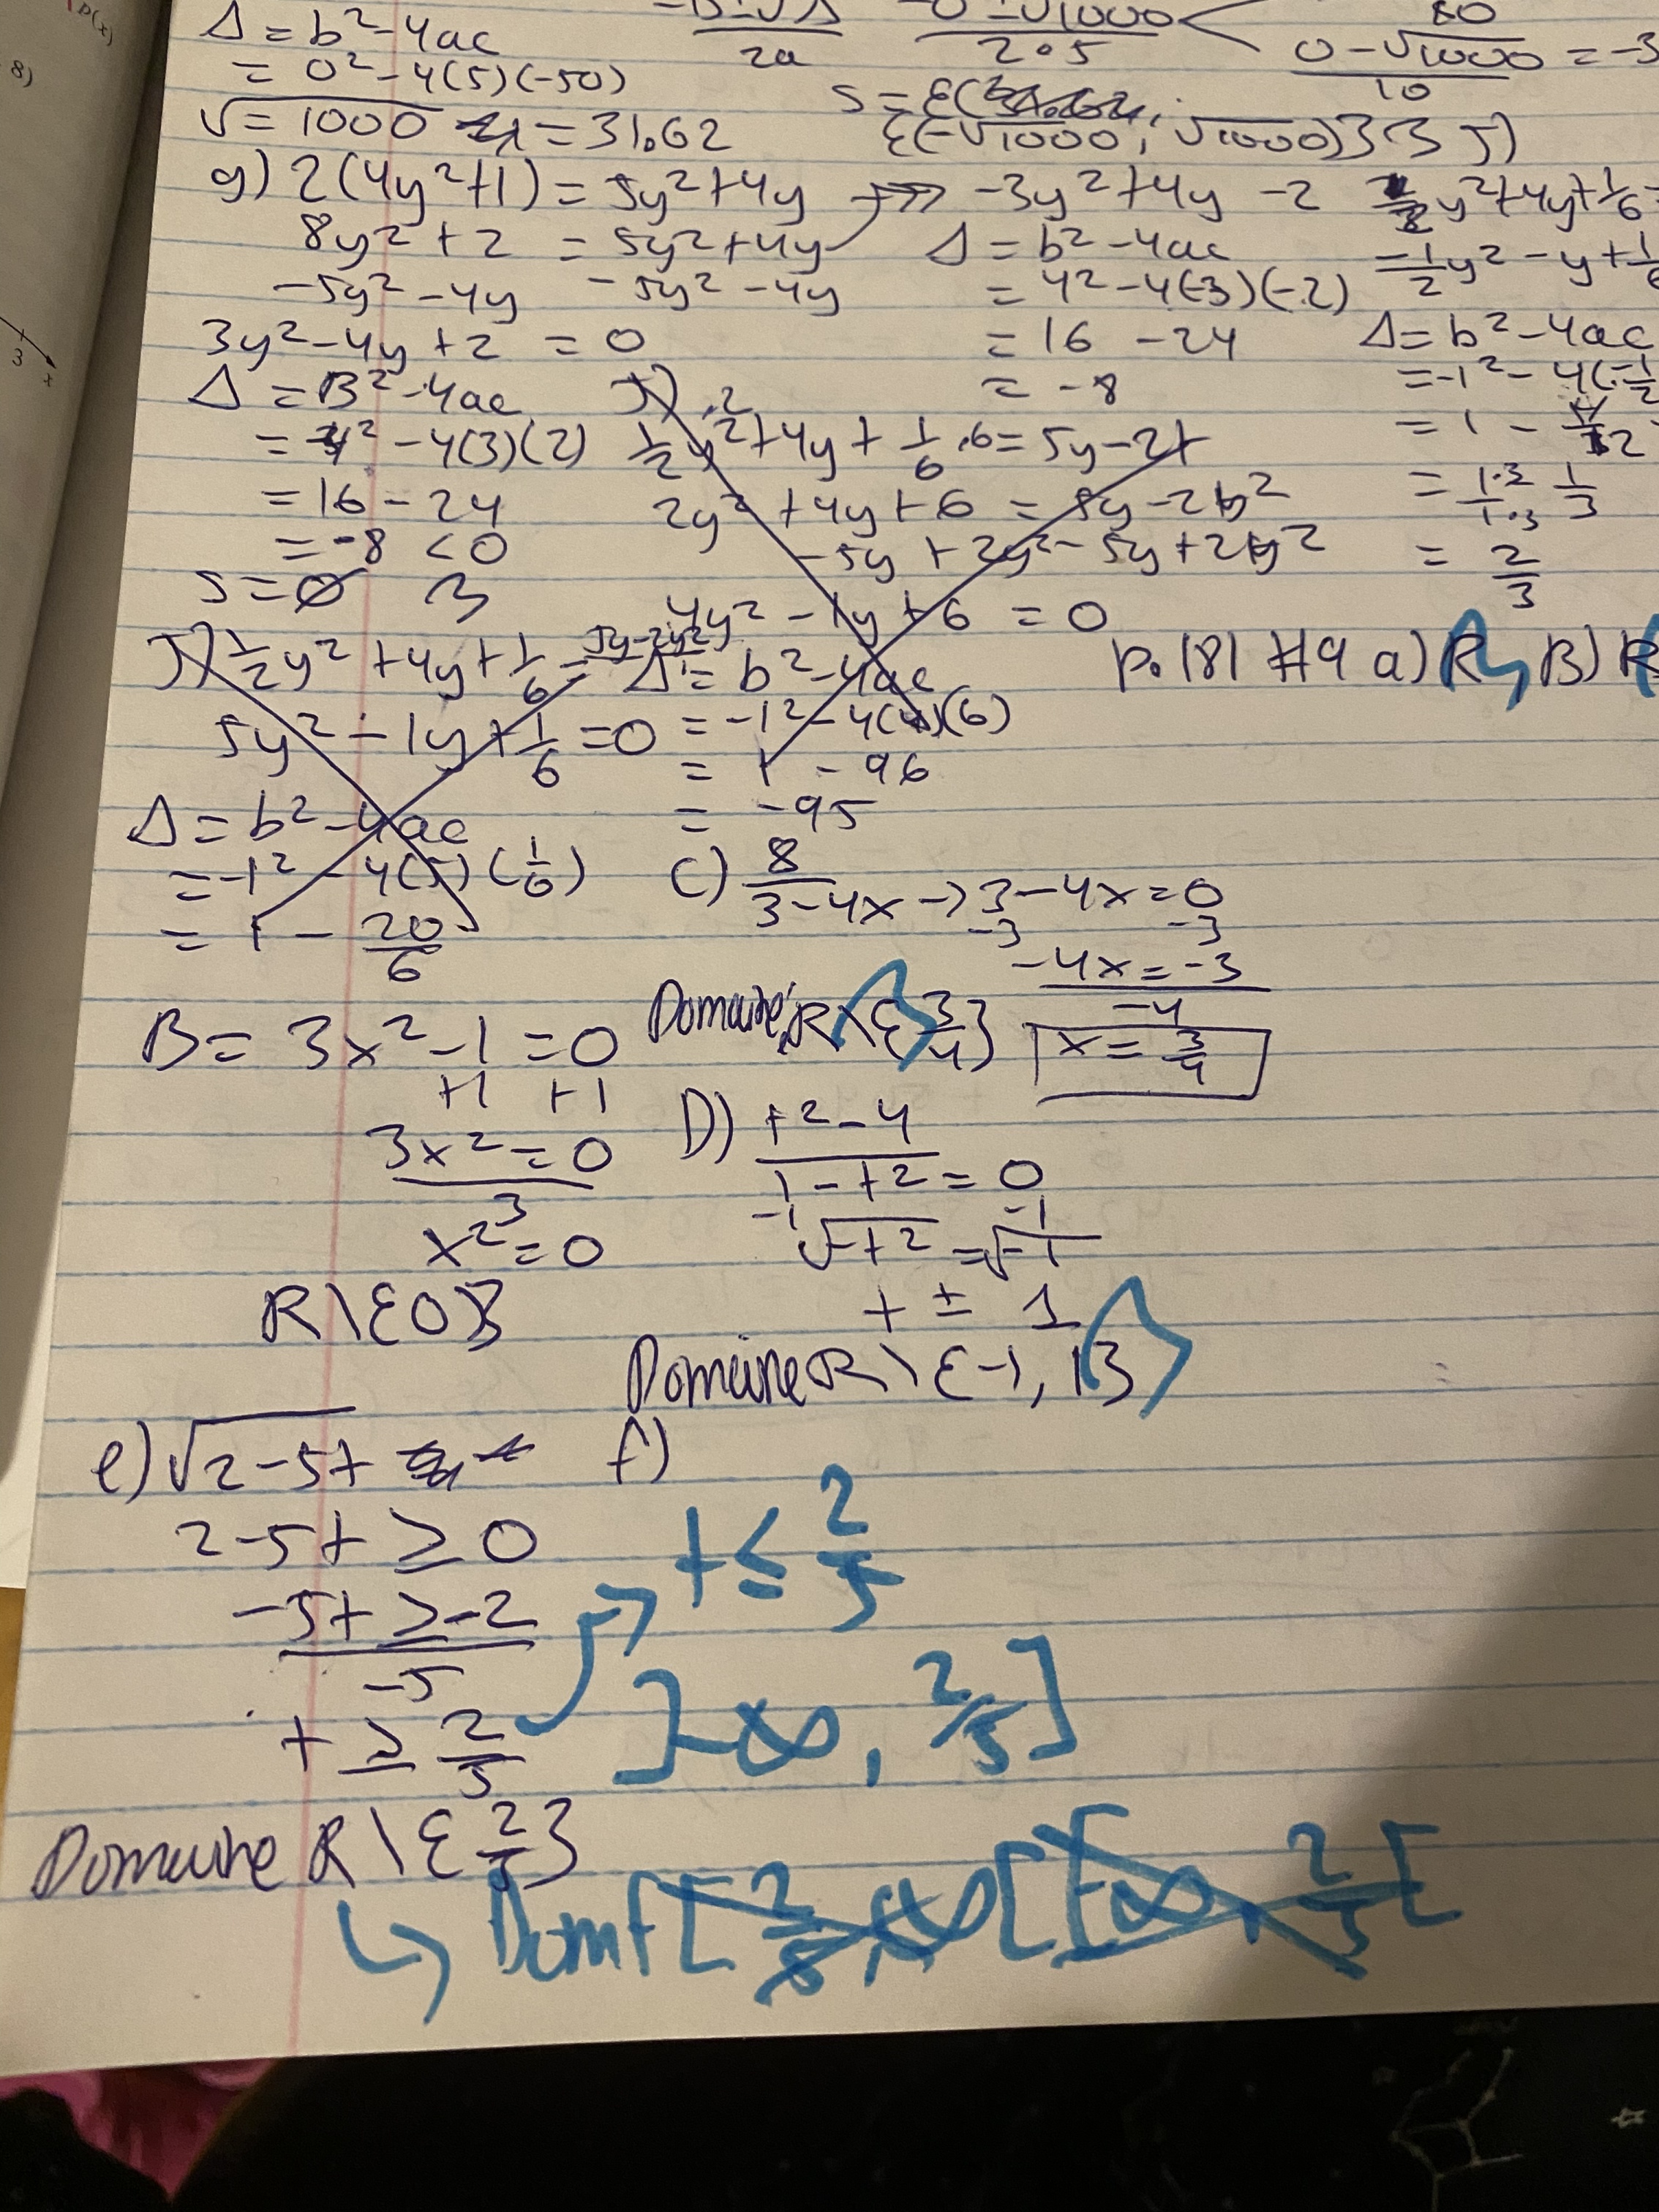 p(x)
8)
3
x
Δ = b² - 4ac
= 0² - 4(5)(-50)
√ = 1000 = 31.62
2a
2 • 5
0 - √1000 = -3
10
{(-√1000, √1000)}
g) 2(4y²+1) = 5y²+4y
8y² + 2 = 5y²+4y
-5y² -4y -5y² -4y
3y² - 4y + 2 = 0
Δ = B² - 4ac
= 4² - 4(3)(2)
= 16 - 24
= -8 < 0
S = ∅
-3y² + 4y - 2
Δ = b² - 4ac
= 4² - 4(-3)(-2)
= 16 - 24
= -8
y² + 4y + 1/6
= -1/2 y² - y + 1/6
Δ = b² - 4ac
= -1² - 4(-1/2
= 1 -
= 1·3/1·3 1/3
= 2/3
1/2 y² + 4y + 1/6 .6 = 5y - 2
2y² + 4y + 6 = 5y - 2
-5y + 2y² - 5y + 2y²
4y² - 1y + 6 = 0
Δ = b² - 4ac
= -1² - 4(4)(6)
= 1 - 96
= -95
1/2 y² + 4y + 1/6 = 5y - 2y²
5y² - 1y + 1/6 = 0
Δ = b² - 4ac
= -1² - 4(5)(1/6)
= 1 - 20/6
p. 181 #9 a) R, B) R
C) 8/3-4x → 3 - 4x = 0
-3 -3
-4x = -3
-4
x = 3/4
Domaine R\{3/4}
B = 3x² - 1 = 0
+1 +1
3x² = 0
3
x² = 0
R\{0}
D) t² - 4
1 - t² = 0
-1 -1
√-t² = √-1
t ± 1
Domaine R\{-1, 1}
e) √2-5t
2 - 5t ≥ 0
-5t ≥ -2
-5
t ≥ 2/5
Domaine R\{2/5}
f)
t ≤ 2/5
]-∞, 2/5]
↳ Domf [2/5, ∞[ [-∞, 2/5[